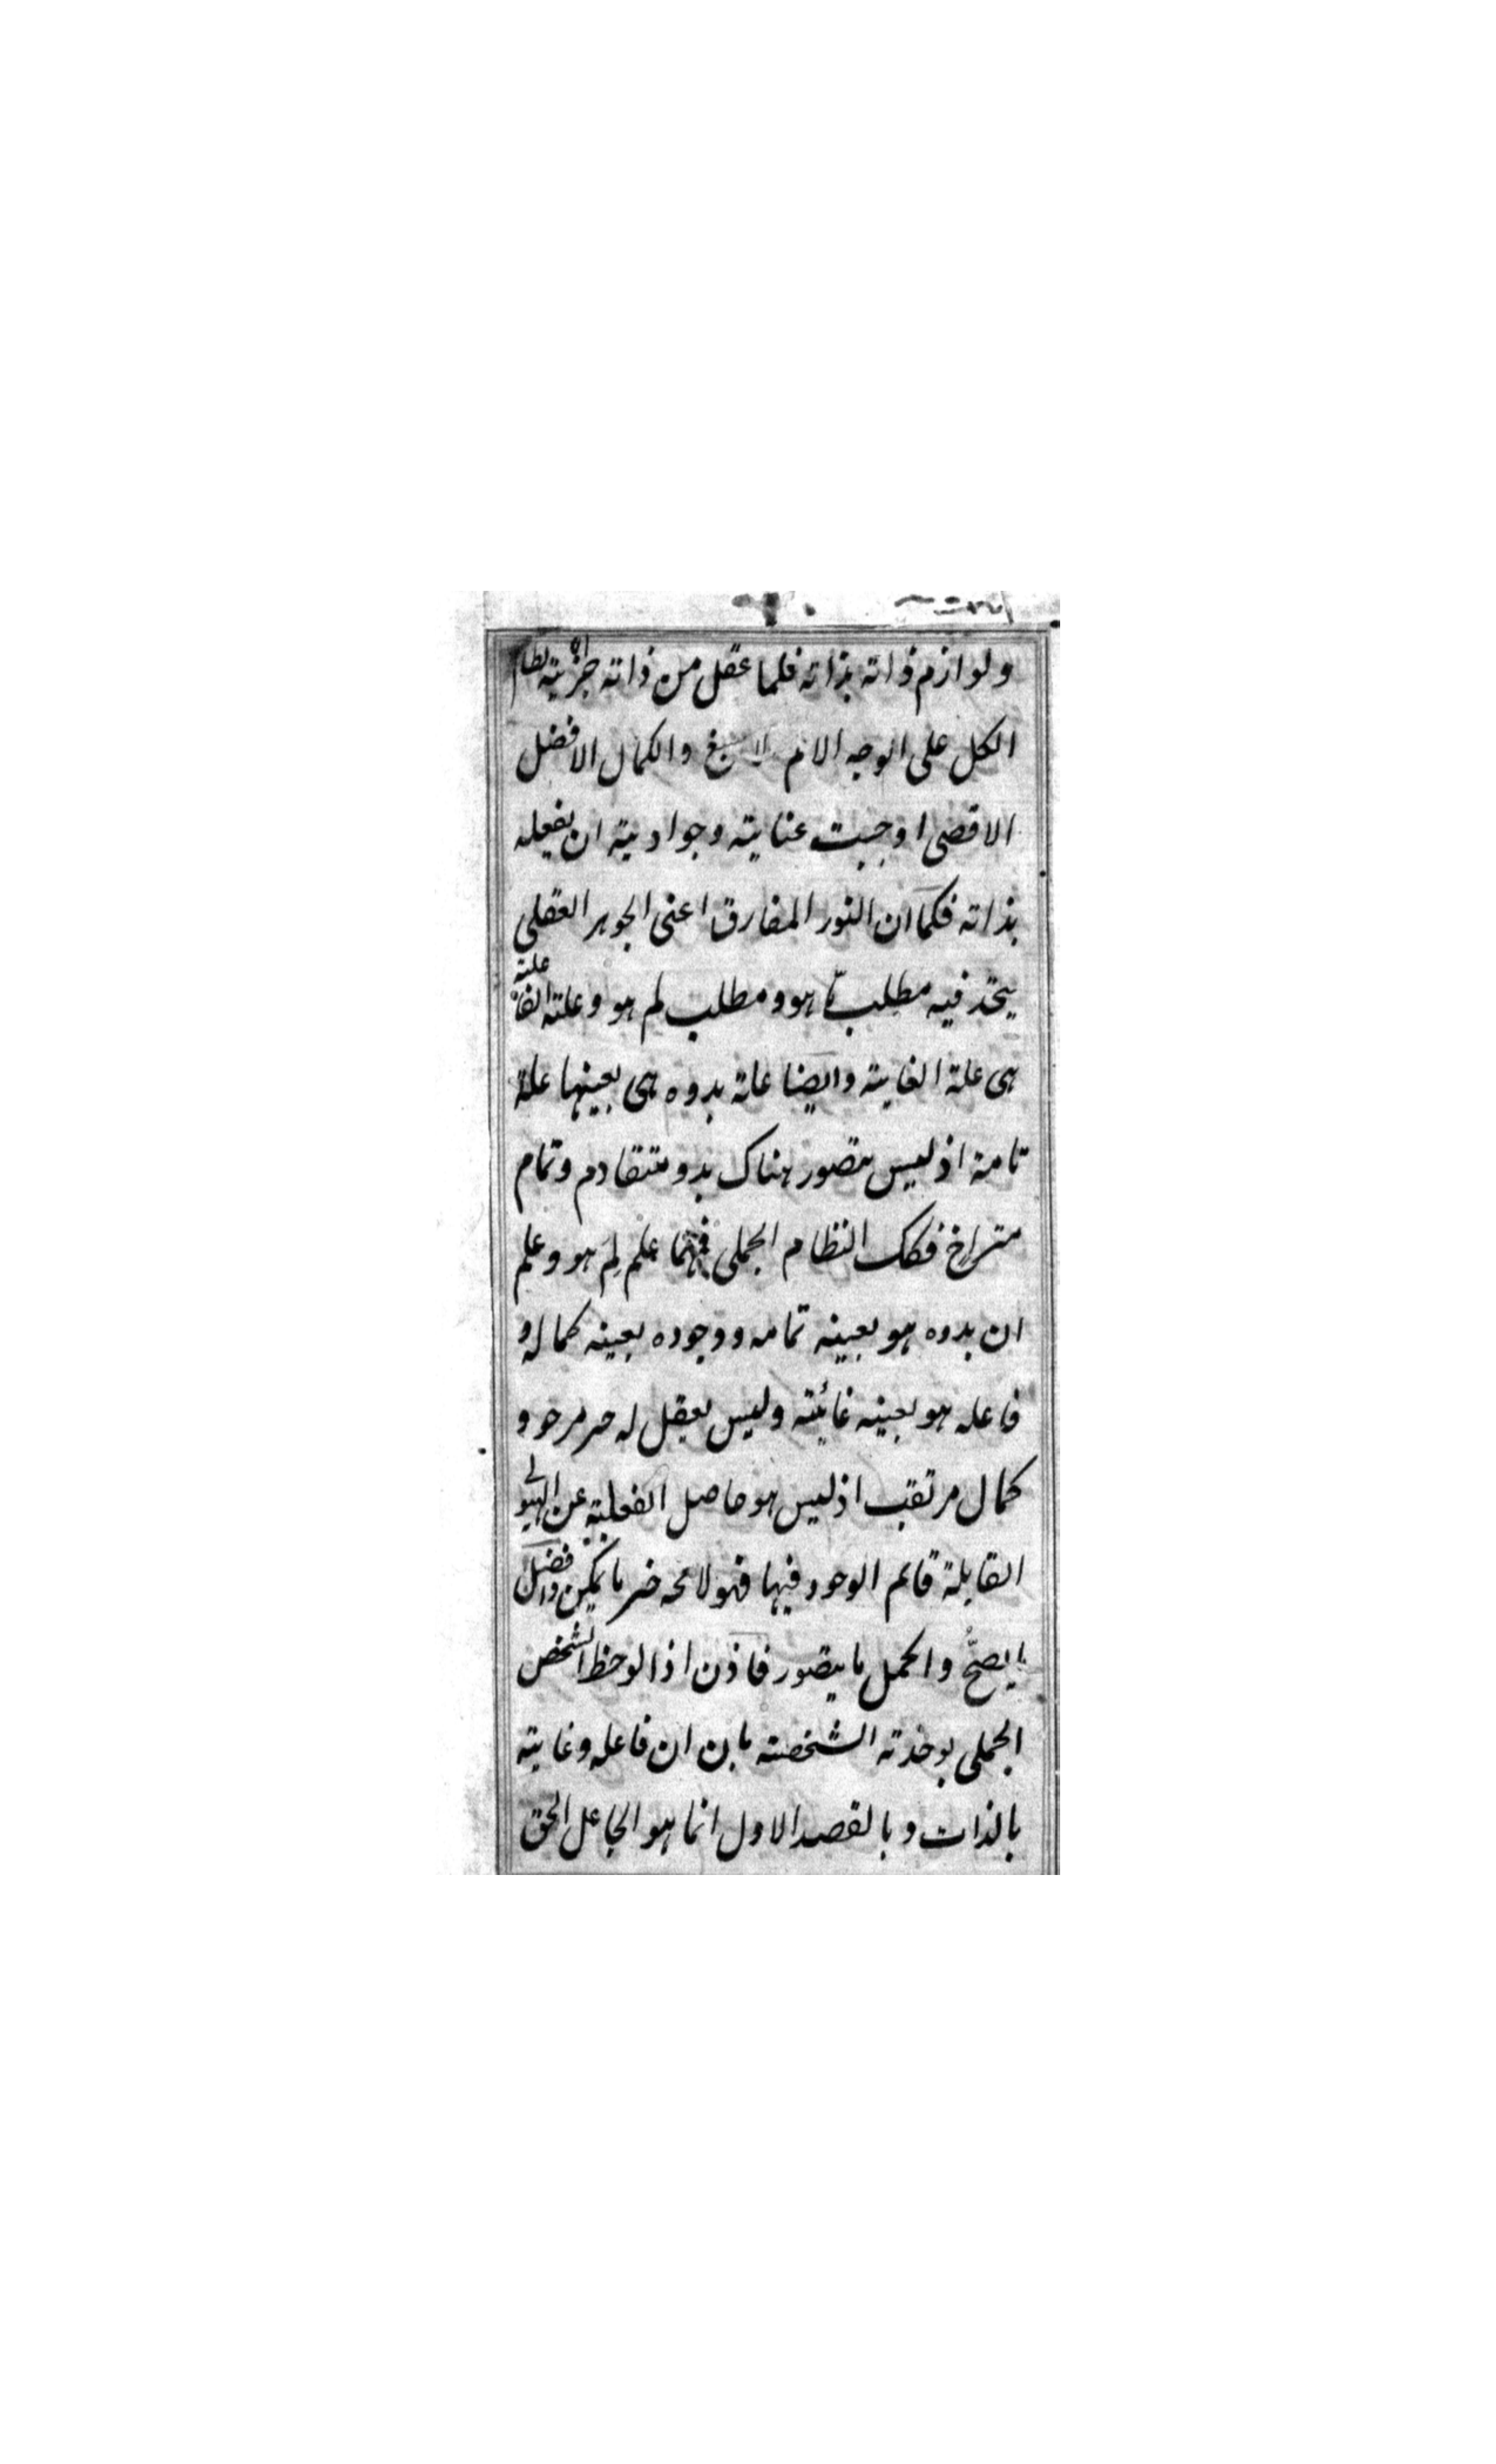 ولوازم ذاته بذاته فلما عقل من ذاته خيرية نظام
الكل على الوجه الاتم والكمال الافضل
الاقصى اوجبت عنايته وجواديته ان يفعله
بذاته فكما ان النور المفارق اعنى الجوهر العقلى
يتحد فيه مطلب ما هو ومطلب لم هو وعلته الفاعلية
هى علة الغاية وايضا علة بدوه هى بعينها علة
تامة اذ ليس يتصور هناك بدو متقادم وتمام
متراخ فكك النظام الجملى علم لم هو وعلم
ان بدوه هو بعينه تمامه ووجوده بعينه كماله و
فاعله هو بعينه غائيته وليس يعقل له مرجو و
كمال مرتقب اذ ليس هو حاصل الفعلية عن الهيولى
القابلة قائم الوجود فيها فهو لا محه خير ما يمكن وافضل
ما يصح واكمل ما يتصور فاذن اذا لوحظ الشخص
الجملى بوحدته الشخصية بان ان فاعله وغايته
بالذات وبالقصد الاول انما هو الجاعل الحق